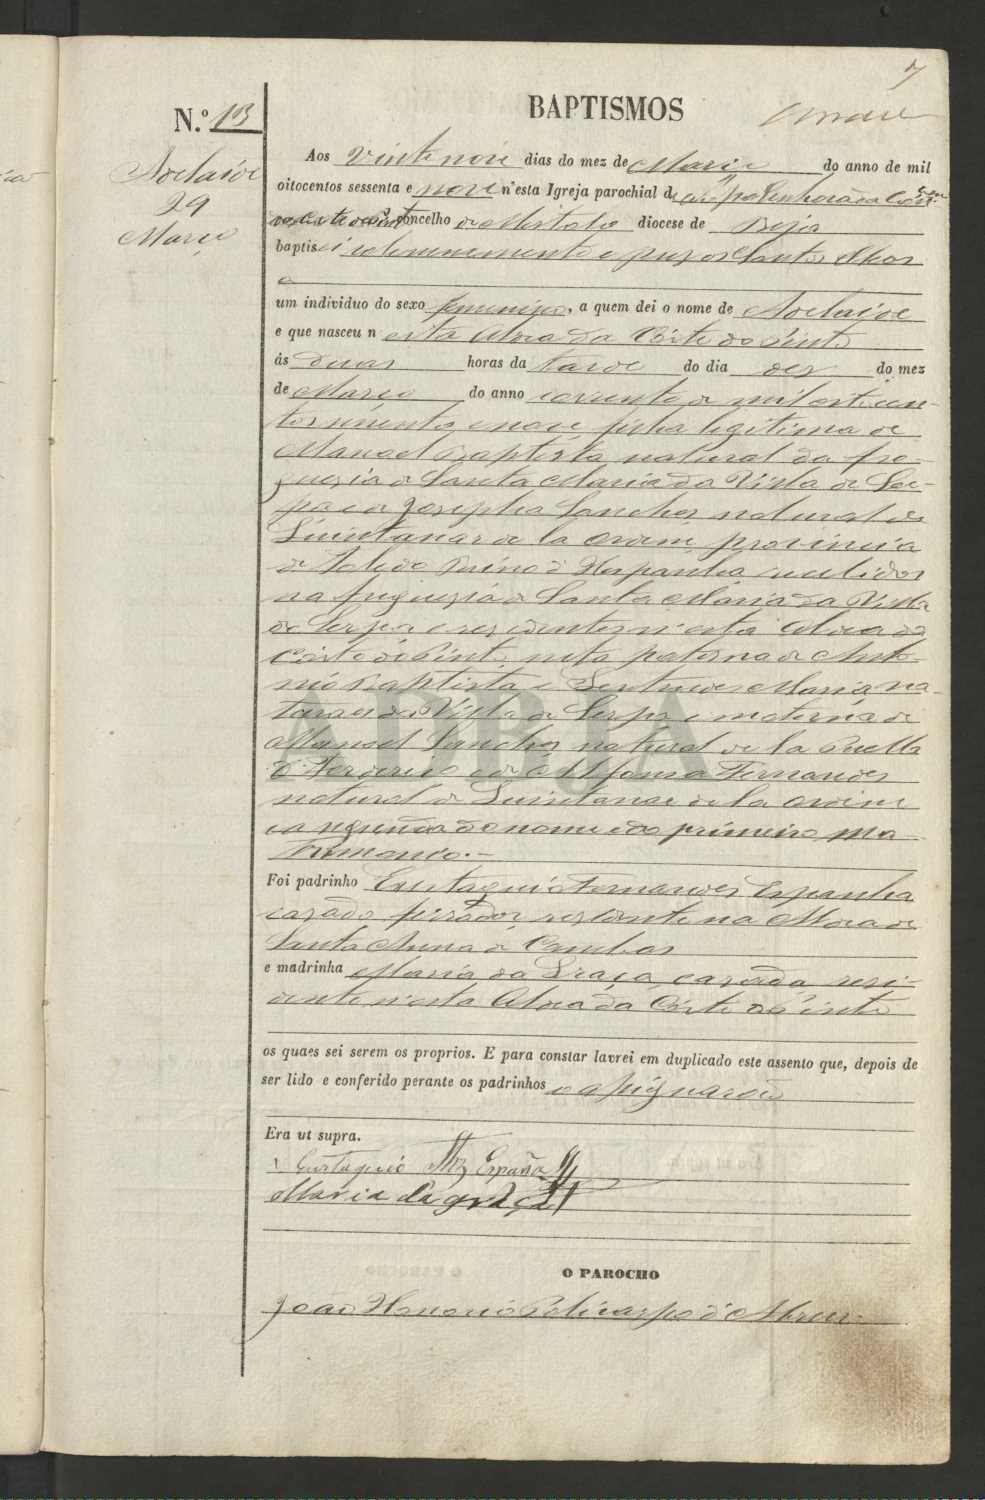 7
N.º 13
BAPTISMOS
Adelaide
29
Março
Aos Vinte nove dias do mez de Março do anno de mil
oitocentos sessenta e nove n'esta Igreja parochial de Nossa Senhora da Conceição
da Corte do Pinto concelho de Mertola diocese de Beja
baptisei solemnemente e puz os Santos Oleos
um individuo do sexo femenino, a quem dei o nome de Adelaide
e que nasceu n esta Aldea da Côrte do Pinto
ás duas horas da tarde do dia dez do mez
de Março do anno corrente de mil oitocen-
tos secenta e nove filha legitima de
Manoel Baptista natural da fre-
guezia de Santa Maria da Villa de Ser-
pa e de Josepha Sanches natural de
Quintanar de la Ordem provincia
de Toledo Reino d'Hespanha recebidos
na freguezia de Santa Maria da Villa
de Serpa e residentes n'esta Aldea da
Côrte do Pinto, neta paterna de Anto-
nio Baptista e Gertrudes Maria na-
turaes da Villa de Serpa e materna de
Manoel Sanches natural de la Puebla
de Alfonsa Fernandes
natural de Quintanar de la Ordem
e a segunda do nome e do primeiro ma-
trimonio.-
Foi padrinho Eustaquio Fernandes Espanha
cazado residente na Aldea de
Santa Anna de Cambas
e madrinha Maria da Graça, cazada, resi-
dente n'esta Aldea da Côrte do Pinto
os quaes sei serem os proprios. E para constar lavrei em duplicado este assento que, depois de
ser lido e conferido perante os padrinhos o assignarão
Era ut supra.
Eustaquio Frz España
Maria da graça
O PAROCHO
João Honorio Policarpo d'Abreu
ADBJA